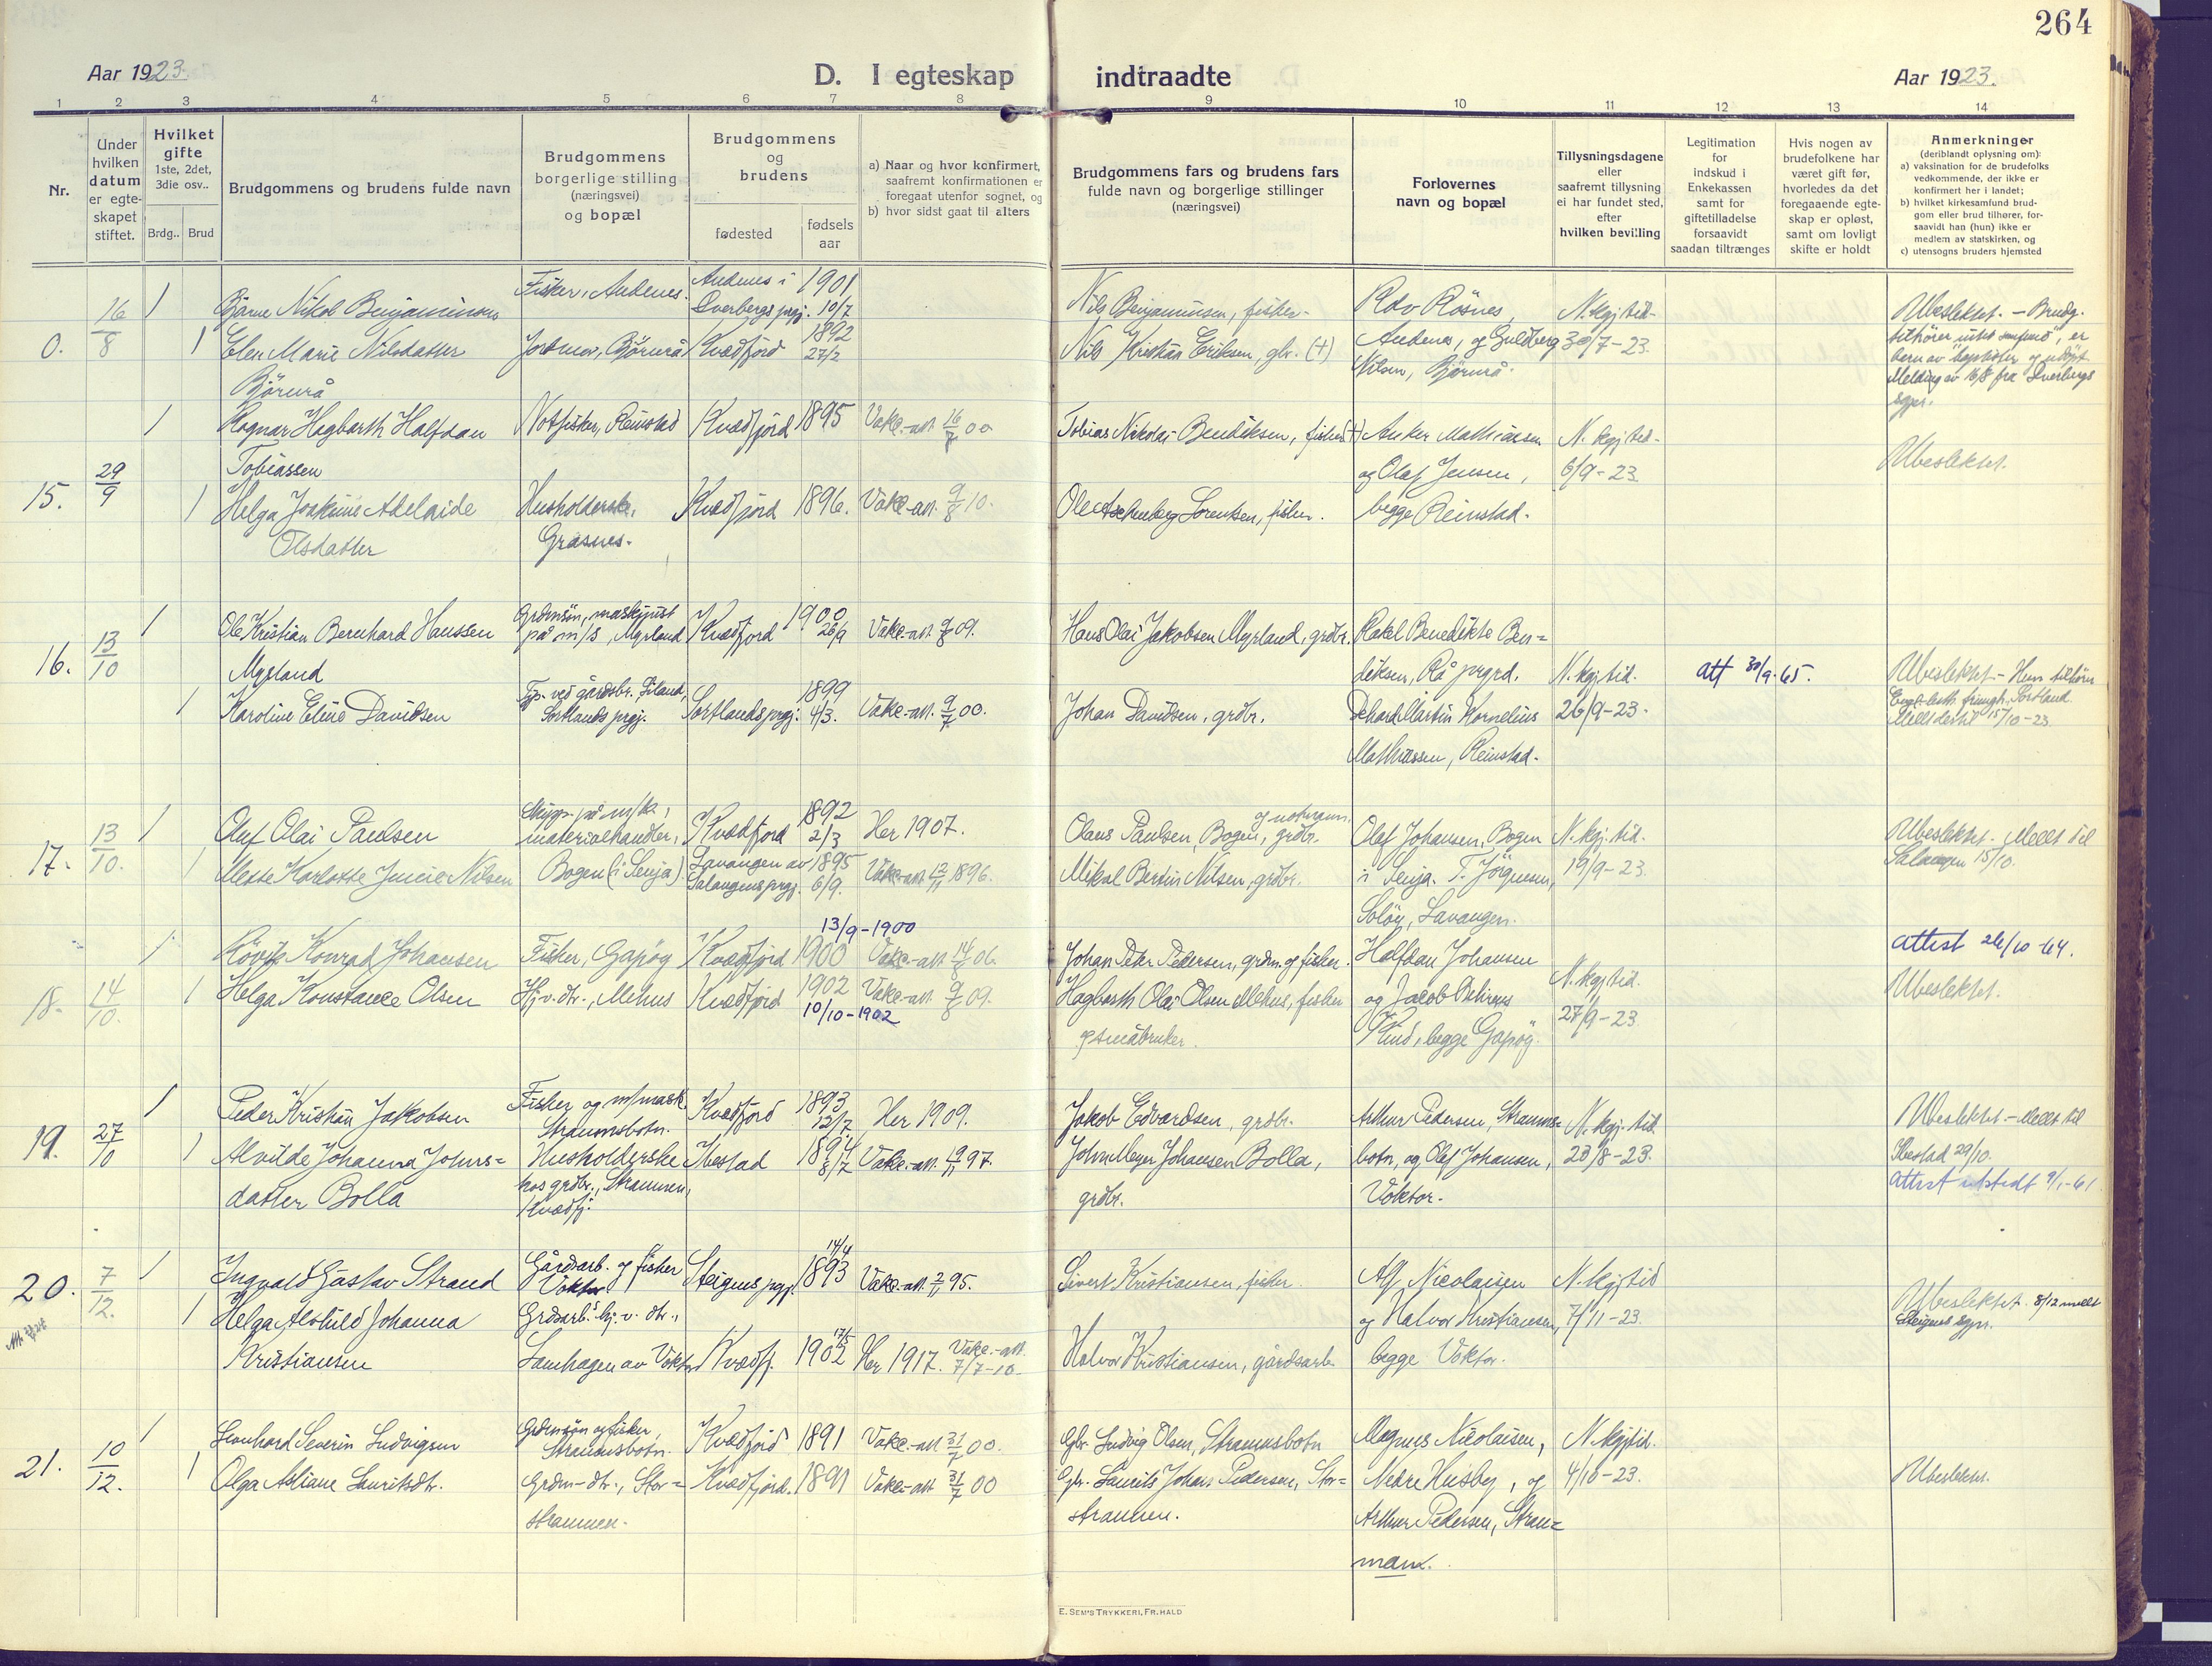 264
Aar 1923.
D. I egteskap indtraadte
Aar 1923.
1 2 3 4 5 6 7 8 9 10 11 12 13 14
Nr.
Under hvilken datum er egte- skapet stiftet.
Hvilket gifte 1ste, 2det, 3die osv..
Brdg.. Brud
Brudgommens og brudens fulde navn
Brudgommens borgerlige stilling (næringsvei) og bopæl
Brudgommens og brudens
fødested
fødsels aar
a) Naar og hvor konfirmert,
saafremt konfirmationen er
foregaat utenfor sognet, og
b) hvor sidst gaat til alters
Brudgommens fars og brudens fars
fulde navn og borgerlige stillinger
(næringsvei)
Forlovernes
navn og bopæl
Tillysningsdagene
eller
saafremt tillysning
ei har fundet sted,
efter
hvilken bevilling
Legitimation
for
indskud i
Enkekassen
samt for
giftetilladelse
forsaavidt
saadan tiltrænges
Hvis nogen av
brudefolkene har
været gift før,
hvorledes da det
foregaaende egte-
skap er opløst,
samt om lovligt
skifte er holdt
Anmerkninger
(deriblandt oplysning om):
a) vaksination for de brudefolks
vedkommende, der ikke er
konfirmert her i landet;
b) hvilket kirkesamfund brud-
gom eller brud tilhører, for-
saavidt han (hun) ikke er
medlem av statskirken, og
c) utensogns bruders hjemsted
0. 16/8
1 Bjarne Nikol Benjaminsen
Fisker, Andenes.
Andenes i Dverbergs prgj.
1901 10/7
Nils Benjaminsen, fisker.
1 Elen Marie Nilsdatter
Bjørnrå
Jordmor, Bjørnrå
Kvæfjord
1892 27/2
Nils Kristian Eriksen, gbr. (+)
Røsnes, Andenes, og Guldberg
Nilsen, Bjørnrå.
N. kgj. tid.
30/7-23.
Ubeslektet. - Brudg.
tilhører
Melding av 16/8 fra Dverbergs
spr.
15. 29/9
1 Ragnar Hagbarth Halfdan
Tobiassen
Notfisker, Reinstad
Kvæfjord 1895
Vakc.-att. 16/7 00
Tobias Nikolai Bendiksen, fisker (+)
1 Helga Joakime Adelaide
Olsdatter
Husholderske,
Grasnes.
Kvæfjord 1896.
Vakc.-att. 9/8 10.
Ole Aschenberg Sørensen, fisker.
Anker Mathiassen
og Olaf Jensen,
begge Reinstad.
N. kgj. tid.
6/9-23
Ubeslektet.
16. 13/10
1 Ole Kristian Bernhard Hanssen
Myrland
Grdmsøn, maskinist
på m/s, Myrland
Kvæfjord 1900 26/9
Vakc.-att. 9/8 09.
Hans Olai Jakobsen Myrland, grdbr.
1 Karoline Eline Davidsen
Sortlands prgj.
Sortlands prgj. 1899 4/3.
Vakc.-att. 9/7 00.
Johan Davidsen, grdbr.
Rakel Benedikte Ben=
diksen, Rå prgrd.
Martin Kornelius
Mathiassen, Reinstad.
N. kgj. tid.
26/9-23.
att 30/9-65.
Ubeslektet. - Hun tilhører
Evgl. luth. frimgh., Sortland.
15/10-23
17. 13/10.
1 Oluf Olai Paulsen
materialhandler,
Bogen (i Senja).
Kvæfjord 1892 2/3
Her 1907.
Olaus Paulsen, Bogen, grdbr.
1 Mette Karlotte Junie Nilsen
Lavangen av Salangens prgj.
1895 6/9.
Vakc.-att. 12/11 1896.
Mikal Bertin Nilsen, grdbr.
Olaf Johansen, Bogen
i Senja. T. Jørgensen,
Soløy, Lavangen.
N. kgj. tid.
19/9-23
Ubeslektet. - Meldt til
Salangen 15/10.
18. 14/10.
13/9-1900
1 Konrad Johansen
Fisker, Gapøy
Kvæfjord 1900
Vakc.-att. 14/8 06
Johan Peter Pedersen, grdm. og fisker.
1 Helga Konstance Olsen
Hj.v. dtr., Mehus
Kvæfjord 1902
10/10-1902
Vakc.-att. 9/8 09.
Hagbarth Olai Olsen Mehus, fisker
og småbruker.
Halfdan Johansen
og Jacob
begge Gapøy.
N. kgj. tid.
27/9-23
attest 26/10-64.
Ubeslektet.
19. 27/10
1 Peder Kristian Jakobsen
Fisker og m/mask.
Straumsbotn.
Kvæfjord 1893 12/7
Her 1909.
Jakob Edvardsen, grdbr.
1 Alvilde Johanna Johns=
datter Bolla
Husholderske
hos grdbr., Straumen,
Kvæfj.
Ibestad 1894 8/7
Vakc.-att. 19/11 97.
John Meyer Johansen Bolla,
grdbr.
Arthur Pedersen, Straums=
botn, og Olaf Johansen,
Voktor.
N. kgj. tid.
28/8-23.
Ubeslektet. - Meldt til
Ibestad 29/10.
Attest utstedt 9/1-61
20. 7/12.
1 Ingvald Gustav Strand
Gårdsarb. og fisker
Voktor
Steigens prgj. 14/4 1893
Vakc.-att. 2/7 95.
Sivert Kristiansen, fisker.
1 Helga Alvhild Johanna
Kristiansen
Grdsarb. hj. v. dtr.,
Lamhagen av Voktor
Kvæfj. 17/5 1902
Her 1917. Vakc.-att.
7/7-10.
Halvor Kristiansen, gårdsarb.
Alf Nicolaisen
og Halvor Kristiansen,
begge Voktor.
N. kgj. tid
7/11-23.
Ubeslektet. 8/12 meldt
Steigens spr.
21. 10/12.
1 Leonhard Severin Ludvigsen
Grdmsøn og fisker,
Straumsbotn.
Kvæfjord 1891
Vakc.-att. 31/7 00.
Gbr. Ludvig Olsen, Straumsbotn
1 Olga Adriane Lauritsdtr.
Grdm-dtr., Stor=
straumen.
Kvæfjord. 1891
Vakc.-att. 31/7 00
Gbr. Laurits Johan Pedersen, Stor=
straumen.
Magnus Nicolaisen,
Nedre Husby, og
Arthur Pedersen, Strau=
man.
N. kgj. tid.
4/10-23.
Ubeslektet.
E. SEM'S TRYKKERI, FR.HALD